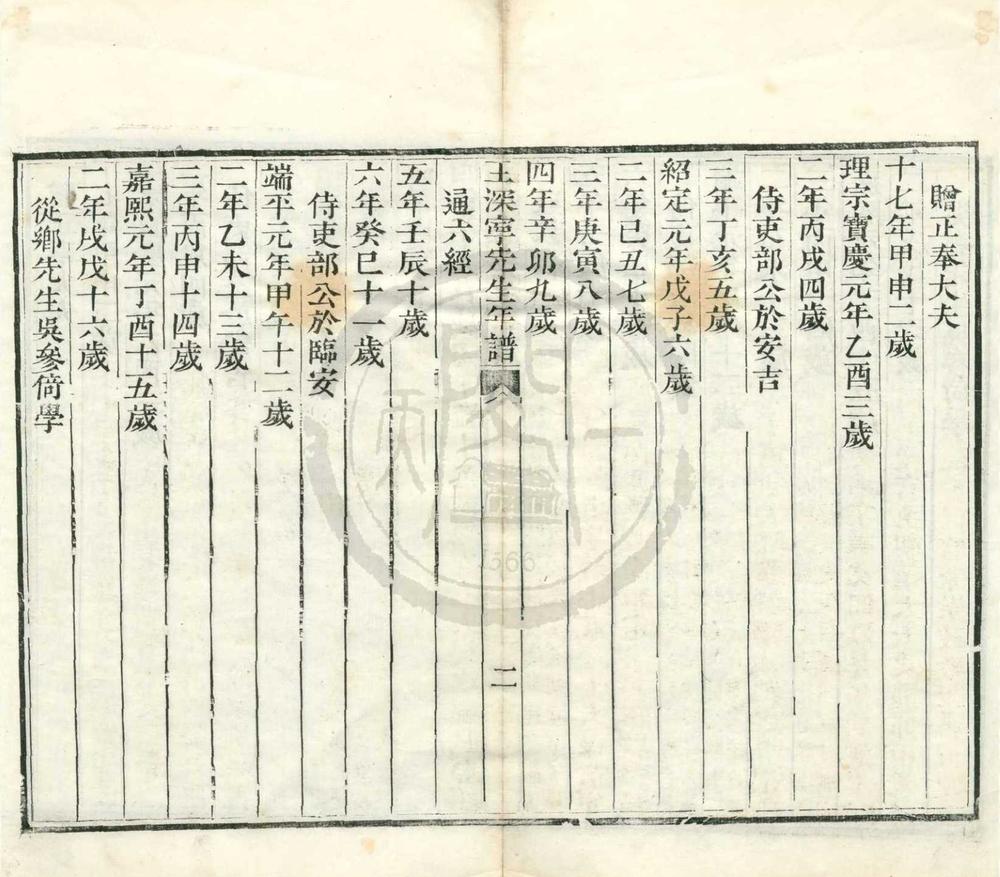 贈正奉大夫
十七年甲申二歲
理宗寶慶元年乙酉三歲
二年丙戌四歲
侍吏部公於安吉
三年丁亥五歲
紹定元年戊子六歲
二年己丑七歲
三年庚寅八歲
四年辛卯九歲
王深寧先生年譜 二
通六經
五年壬辰十歲
六年癸巳十一歲
侍吏部公於臨安
端平元年甲午十二歲
二年乙未十三歲
三年丙申十四歲
嘉熙元年丁酉十五歲
二年戊戌十六歲
從鄉先生吳參倚學
1566